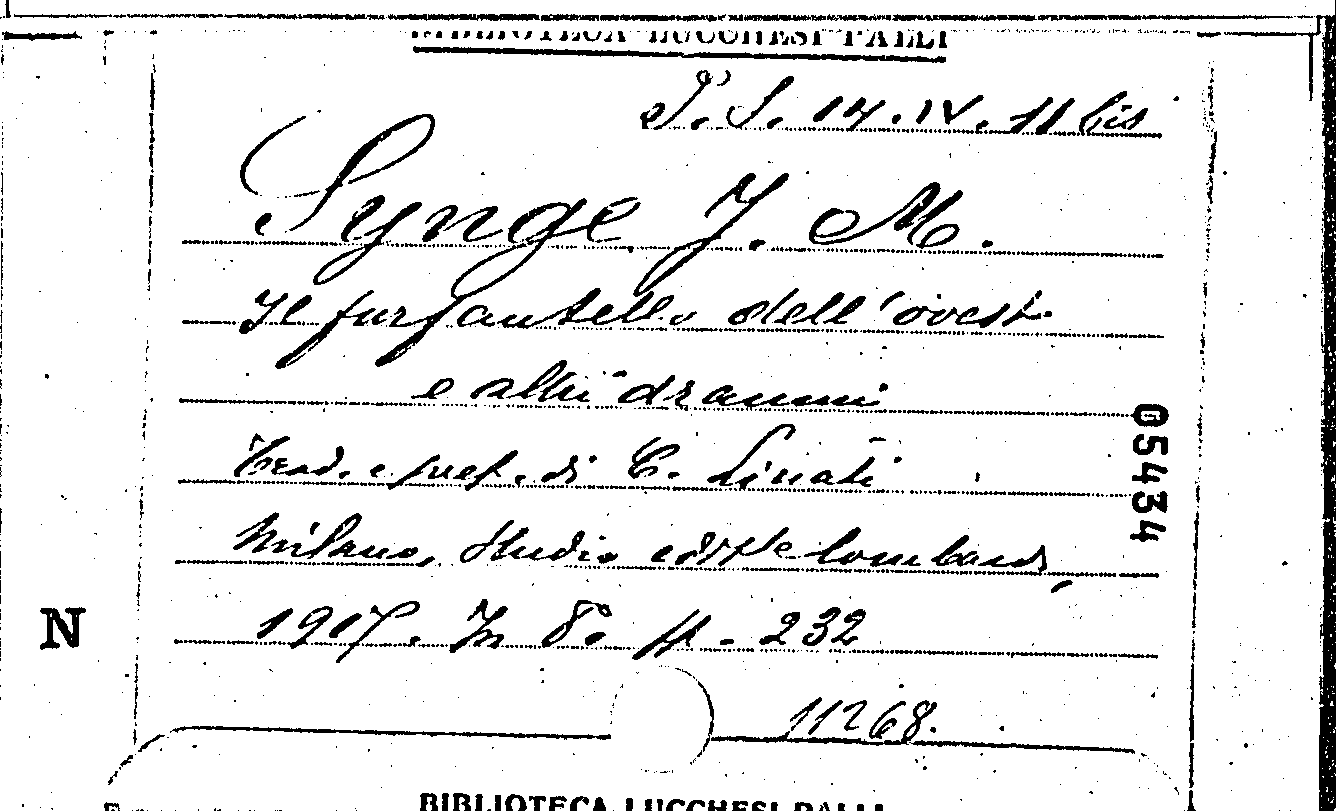 BIBLIOTECA LUCCHESI PALLI
P. S. 14. IV. 11 bis
Synge J. M.
Il furfantello dell'ovest
e altri drammi
Trad. e pref. di C. Linati
05434
Milano, Studio edit.le lombardo,
N
1917. In 8° pp. 232
11268.
BIBLIOTECA LUCCHESI PALLI